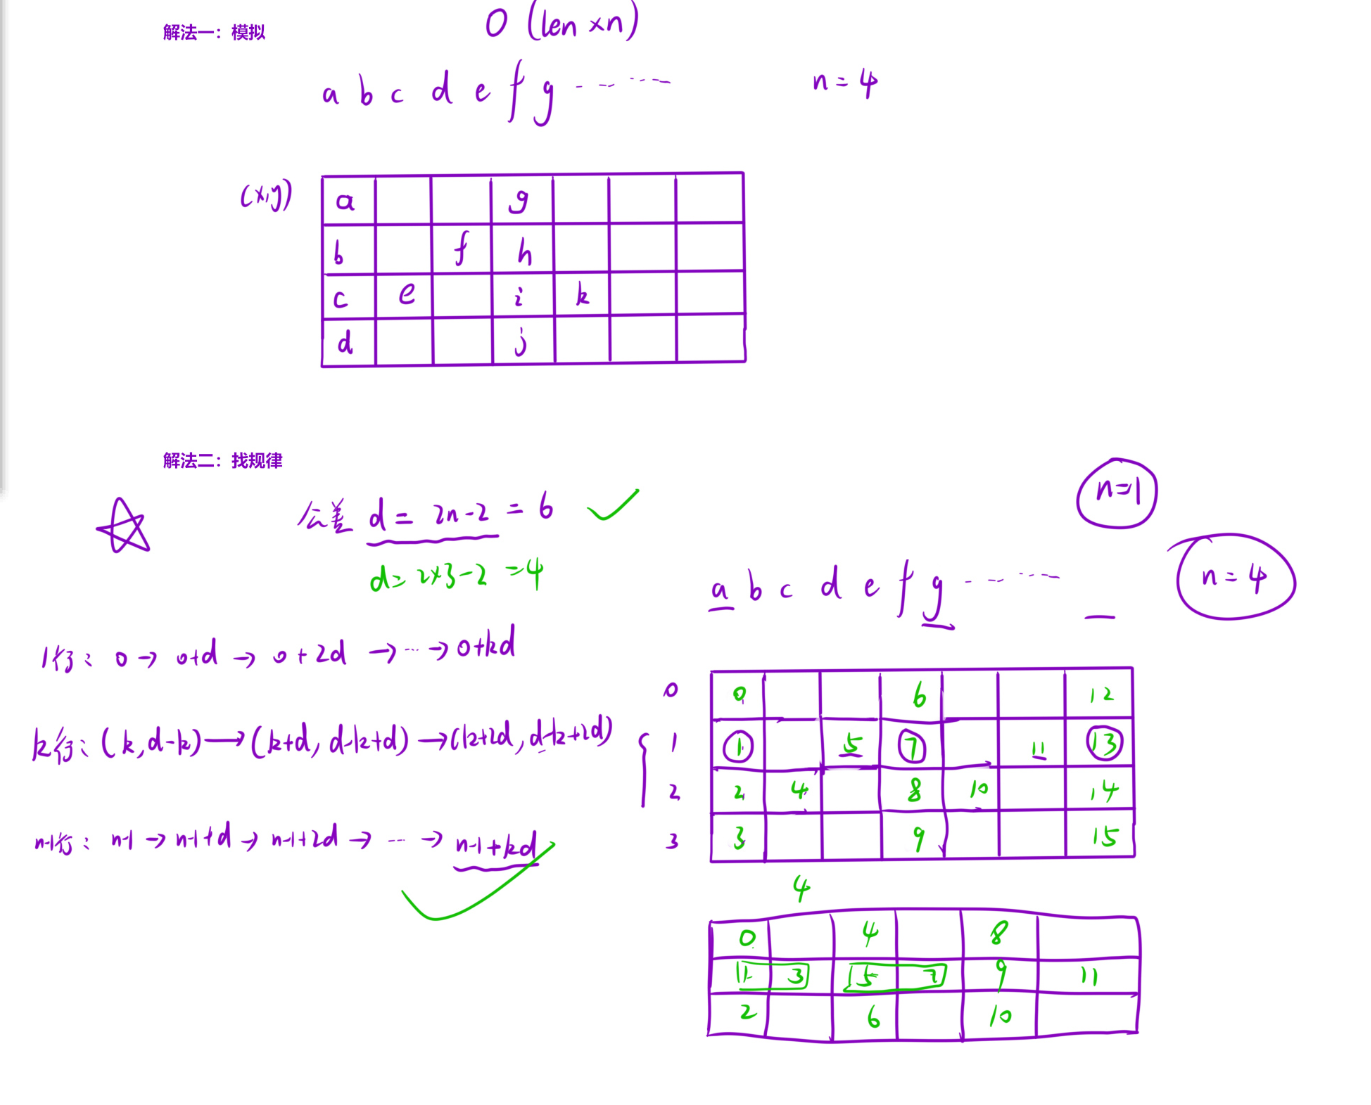 解法一：模拟
O (len×n)
a b c d e f g ......
n = 4
(x,y)
a g
b f h
c e i k
d j
解法二：找规律
n=1
公差 d = 2n-2 = 6
d = 2×3-2 = 4
a b c d e f g ......
n = 4
1行： 0 → 0+d → 0+2d → ... → 0+kd
0 0 6 12
k行：(k,d-k) → (k+d, d-k+d) → (k+2d, d-k+2d)
1 1 5 7 11 13
2 2 4 8 10 14
n-1行： n-1 → n-1+d → n-1+2d → ... → n-1+kd
3 3 9 15
4
0 4 8
1 3 5 7 9 11
2 6 10